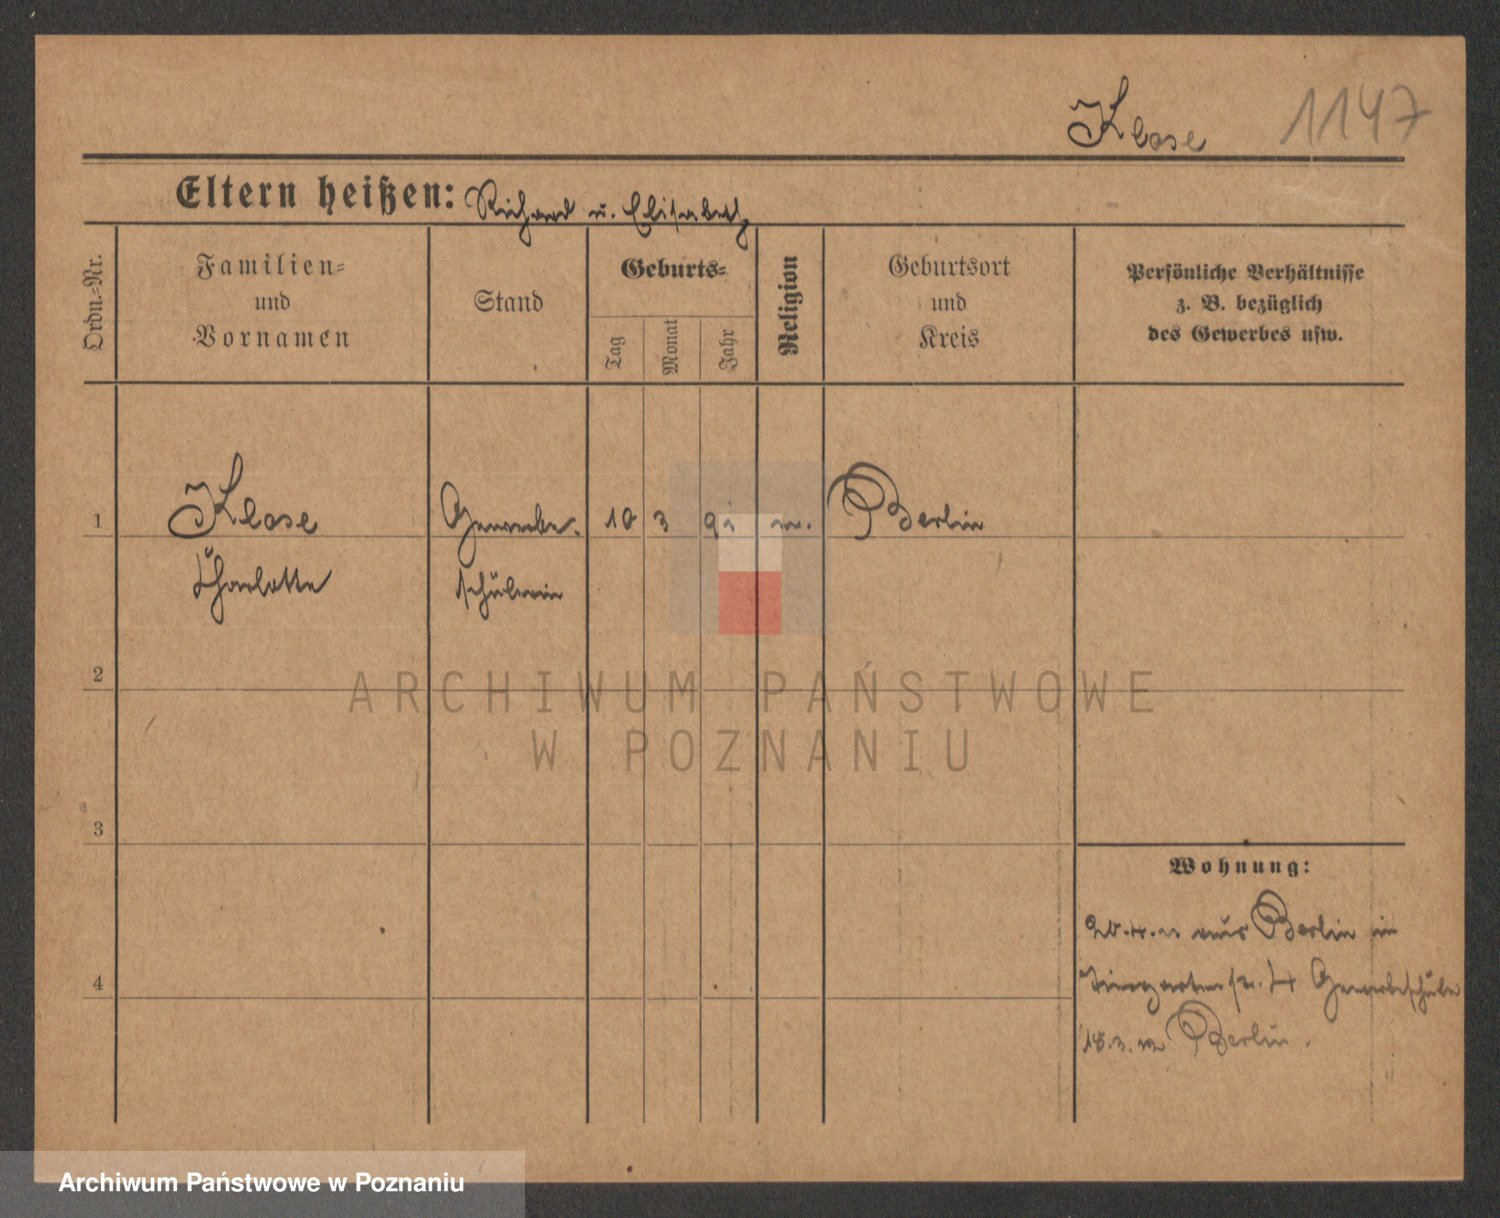 Klose 1147
Eltern heißen: Richard u. Elisabeth
Ordn.-Nr.
Familien-
und
Vornamen
Stand
Geburts-
Tag
Monat
Jahr
Religion
Geburtsort
und
Kreis
Persönliche Verhältnisse
z. B. bezüglich
des Gewerbes usw.
1 Klose Gewerbe. 10 3 Berlin
Charlotte schülerin
2
ARCHIWUM PAŃSTWOWE
W POZNANIU
3
Wohnung:
aus Berlin in
4 Tiergartenstr. 4 Gewerbeschule
Berlin.
Archiwum Państwowe w Poznaniu